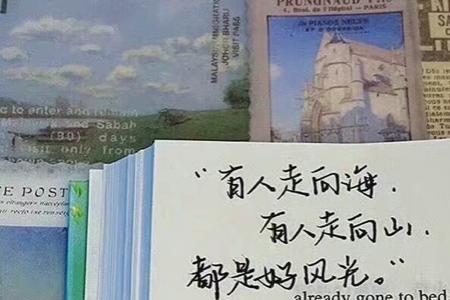 PRUNGNAUD Frè
1, Boul. de l'Hôpital - PARIS
PIANOS NEUFS
ET D'OCCASION
MALAYSIA IMMIGRATION
JOHOR BHARU
VISIT PASS
to enter and remain
Malaysia and Sabah
(30) days
visit only from
above
E POST
“有人走向海.
有人走向山.
都是好风光。”
already gone to bed